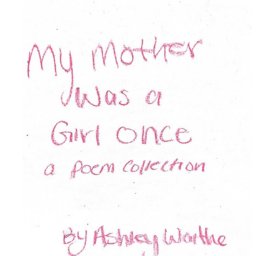 My Mother
Was a
Girl Once
a poem collection
By Ashley Warthe